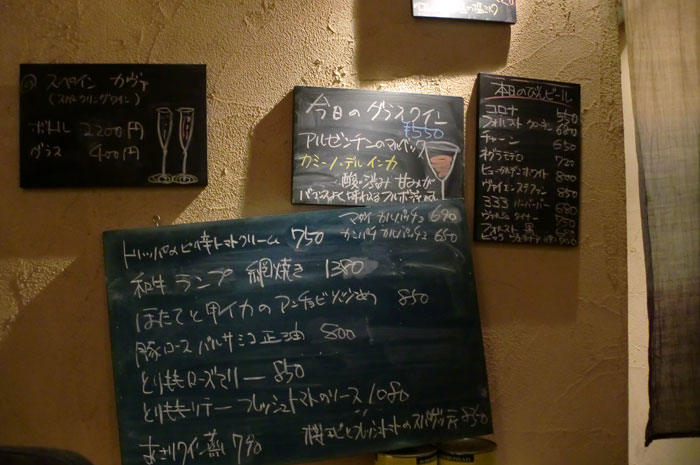 スペイン カヴァ
(スパークリングワイン)
ボトル 2200円
グラス 400円
今日のグラスワイン
¥550
アルゼンチンのマルベック
カミーノ・デル インカ
酸・渋み 甘みが
バランスよく味わえるフルボディ
本日のびんビール
コロナ 550
チャーン 550
ネグラモデロ 720
ヒューガルデンホワイト 800
ヴァイエンステファン 850
333 バーバーバー 680
マダイ カルパッチョ 690
カンパチ カルパッチョ 650
トリッパのピリ辛トマトクリーム 750
和牛ランプ 網焼き 1380
ほたてと甲イカのアンチョビ 850
豚ロース バルサミコ正油 800
とりももローズマリー 850
とりももソテー フレッシュトマトのソース 1080
あさりワイン蒸し 790
桜エビとフレッシュトマトのスパゲッティ